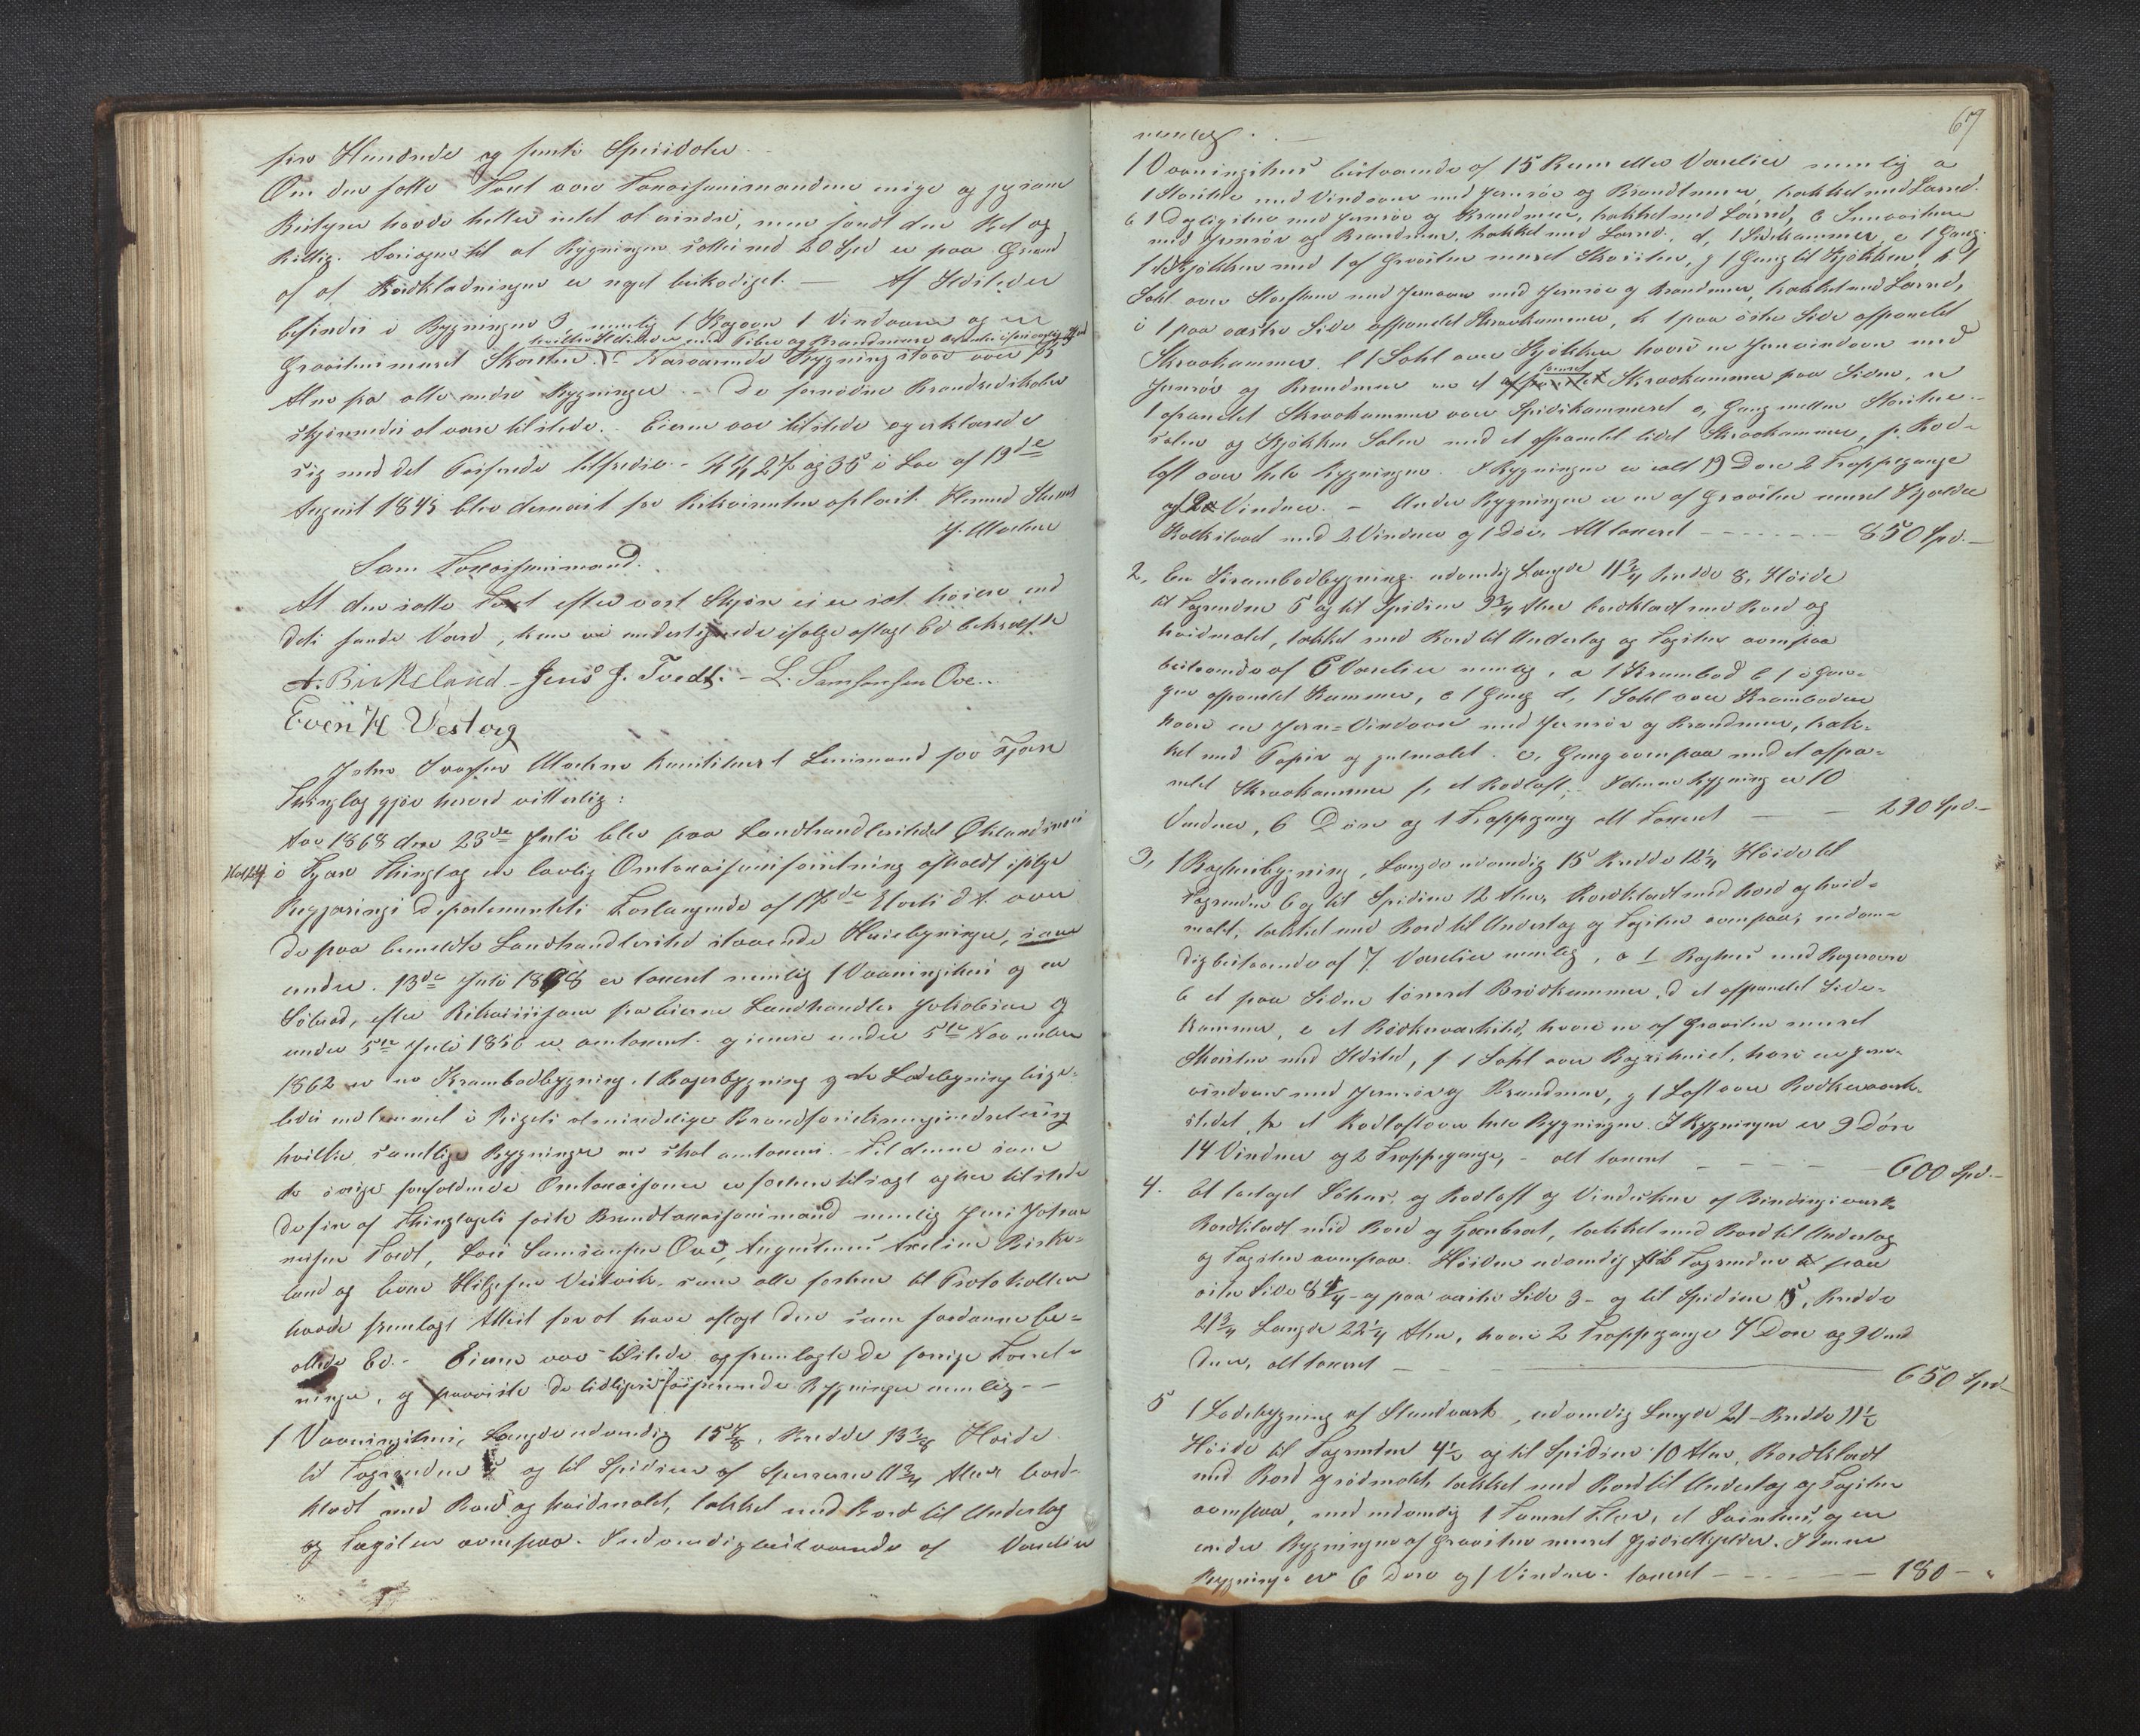 fire Hundrede og femti Speciedaler.
Om den satte Taxt vare Taxationsmændene enige og
Bestyrer havde heller intet at erindre, men fandt den Ret og
Rettig. Aarsagen til at Bygningen sattes ned 20 Spd er paa Grund
af at Bordklædningen er noget beskadiget. — Af Ildsteder
befindes i Bygningen 3 nemlig 1 Bagovn 1 Vindovn og en
hvilke Ildsteder med Piber og Brandmure befandtes i forsvarlig Stand
Graastens muret Skorsten. Nærværende Bygning staar over 15
Alen fra alle andre Bygninger. — De fornødne Brandredskaber
skjønnedes at være tilstede. Eieren var tilstede og erklærede
sig med det Passerede tilfreds. — §§ 27 og 35 i Lov af 19de
August 1845 blev dernæst for Rekvirenten oplæst. Hermed Sluttet
J. Maehne
Som Taxationsmænd.
At den satte Taxt efter vort Skjøn ei er sat høiere end
dets sande Værd, kan vi undertegnede ifølge aflagt Ed bekræfte
A. Birkeland – Jens J. Tvedt. – L. Samsonsen Ove..
Even H Vestvg
John Ivarsen Maehne konstitueret Lensmand for Fjære
Thinglag gjør herved vitterlig:
Aar 1868 den 23de Juli blev paa Landhandlerstedet Øklandsnæs
No 124 i Fjære Thinglag en lovlig Omtaxationsforretning afholdt ifølge
Regjerings Departementets Forlangende af 17de Marts d. A. over
de paa bemeldte Landhandlersted staaende Huusbygninger, som
under 13de Juli 1848 er taxeret nemlig 1 Vaaningshus og en
Søbod, efter Rekvisition fra Eieren Landhandler Jakobsen og
under 5te Juli 1856 er omtaxeret. og senere under 5te November
1862 er en Krambodbygning, 1 Bagerbygning og en Ladebygning lige-
ledes indlemmet i Rigets almindelige Brandforsikringsindretning
hvilke samtlige Bygninger nu skal omtaxeres. Til denne som
de øvrige forefaldende Omtaxationer er forhen tilsagt og her tilstede
de fire af Thinglagets faste Brandtaxationsmænd nemlig Jens Johan-
nesen Tvedt, Lars Samsonsen Ove, Augustinus Axelsen Birke-
land og Even Helgesen Vestvik. som alle forhen til Protokollen
havde fremlagt Attest for at have aflagt den som saadanne be-
falede Ed. – Eieren var tilstede og fremlagte de forrige Forret-
ninger, og paaviste de tidligere assurerede Bygninger nemlig –
1 Vaaningshus, Længde udvendig 15 7/8, Bredde 13 7/8 Høide
til Tagrenden 5 og til Spidsen af Sperrerne 11 3/4 Alen bord-
klædt med Bord og hvidmalet, tækket med Bord til Underlag
og Tagsten ovenpaa. Indvendig bestaaende af Værelser
69
nemlig. –
1 Vaaningshus bestaaende af 15 Rum eller Værelser nemlig a
1 Storstue med Vindovn med Jernrør og Brandmur, trukket med Lærred.
b 1 Dagligstue med Jernrør og Brandmur, trukket med Lærred, c Sengestue
med Jernrør og Brandmur. trukket med Lærred. d, 1 Sidekammer, e 1 Gang.
1 Kjøkken med 1 af Graasten muret Skorsten, g 1 Gang til Kjøkken, h 1
Sahl over Storstuen med Jernovn med Jernrør og Brandmur, trukket med Lærred,
i 1 paa vestre Side afpanelet Skraakammer, k 1 paa østre Side afpanelet
Skraakammer. l 1 Sahl over Kjøkken hvori en Jernvindovn med
Jernrør og Brandmur m et tømret Skraakammer paa Siden, n
1 afpanelet Skraakammer over Spisekammeret o, Gang mellem Storstue-
salen og Kjøkken Salen med et afpanelet lidet Skraakammer, p. Rod-
loft over hele Bygningen. I Bygningen er ialt 19 Døre 2 Trappegange
og Vinduer. – Under Bygningen er en af Graasten muret Kjælder
Halvstand med 2 Vinduer og 1 Dør. Alt taxeret – – – 850 Spd. –
2. En Krambodbygning. udvendig Længde 11 3/4 Bredde 8, Høide
til Tagrenden 5 og til Spidsen 9 3/4 Alen bordklædt med Bord og
hvidmalet, tækket med Bord til Underlag og Tagsten ovenpaa
bestaaende af 6 Værelser nemlig, a 1 Krambod b 1 i Gan-
gen afpanelet Kammer, c 1 Gang d, 1 Sahl over Kramboden
hvori en Jern-Vindovn med Jernrør og Brandmur, truk-
ket med Papir og gulmalet. e, Gang ovenpaa med et afpa-
nelet Skraakammer f, et Rodloft. I denne Bygning er 10
Vinduer, 6 Døre og 1 Trappegang alt taxeret – – 290 Spd. –
3, 1 Baghusbygning, Længde udvendig 15 Bredde 12 1/4 Høide til
Tagrenden 6 og til Spidsen 12 Alen, Bordklædt med bord og hvid-
malt, tækket med Bord til Underlag og Tagsten ovenpaa, indven-
dig bestaaende af 7 Værelser nemlig, a 1 Baghus med Bagerovn
b et paa Siden tømret Brødkammer, d et afpanelet Side-
kammer, e et Bødkerværksted, hvori en af Graasten muret
Skorsten med Ildsted, f 1 Sahl over Baghuset, hvori en Jern-
vindovn med Jernrør og Brandmur, g 1 Loft over Bødkerværk-
stedet, h et Rodloft over hele Bygningen. I Bygningen er 9 Døre
14 Vinduer og 2 Trappegange, – alt taxeret – – – 600 Spd. –
4. Et toetages Søhus, og Rodloft og Vindeskur af Bindingsværk.
Bordklædt med Bord og Tjærebræt, tækket med Bord til Underlag
og Tagsten ovenpaa. Høiden udvendig til Tagrenden paa
østre Side 8 1/4 – og paa vestre Side 3 – og til Spidsen 15, Bredde
21 3/4 Længde 22 1/4 Alen, hvori 2 Trappegange 7 Døre og 9 Vin-
duer, alt taxeret — 650 Spd –
5 1 Ladebygning af Standværk, udvendig Længde 21 – Bredde 11 1/2
Høide til Tagrenden 4 1/2 og til Spidsen 10 Alen, Bordklædt
med Bord og rødmalet, tækket med Bord til Underlag og Tagsten
ovenpaa, med indvendig 1 tømret Flor, et Svinehus, og en
under Bygningen af Graasten muret Gjødselkjelder. I denne
Bygning er 6 Døre og 1 Vindue. taxeret – – – 180 – "